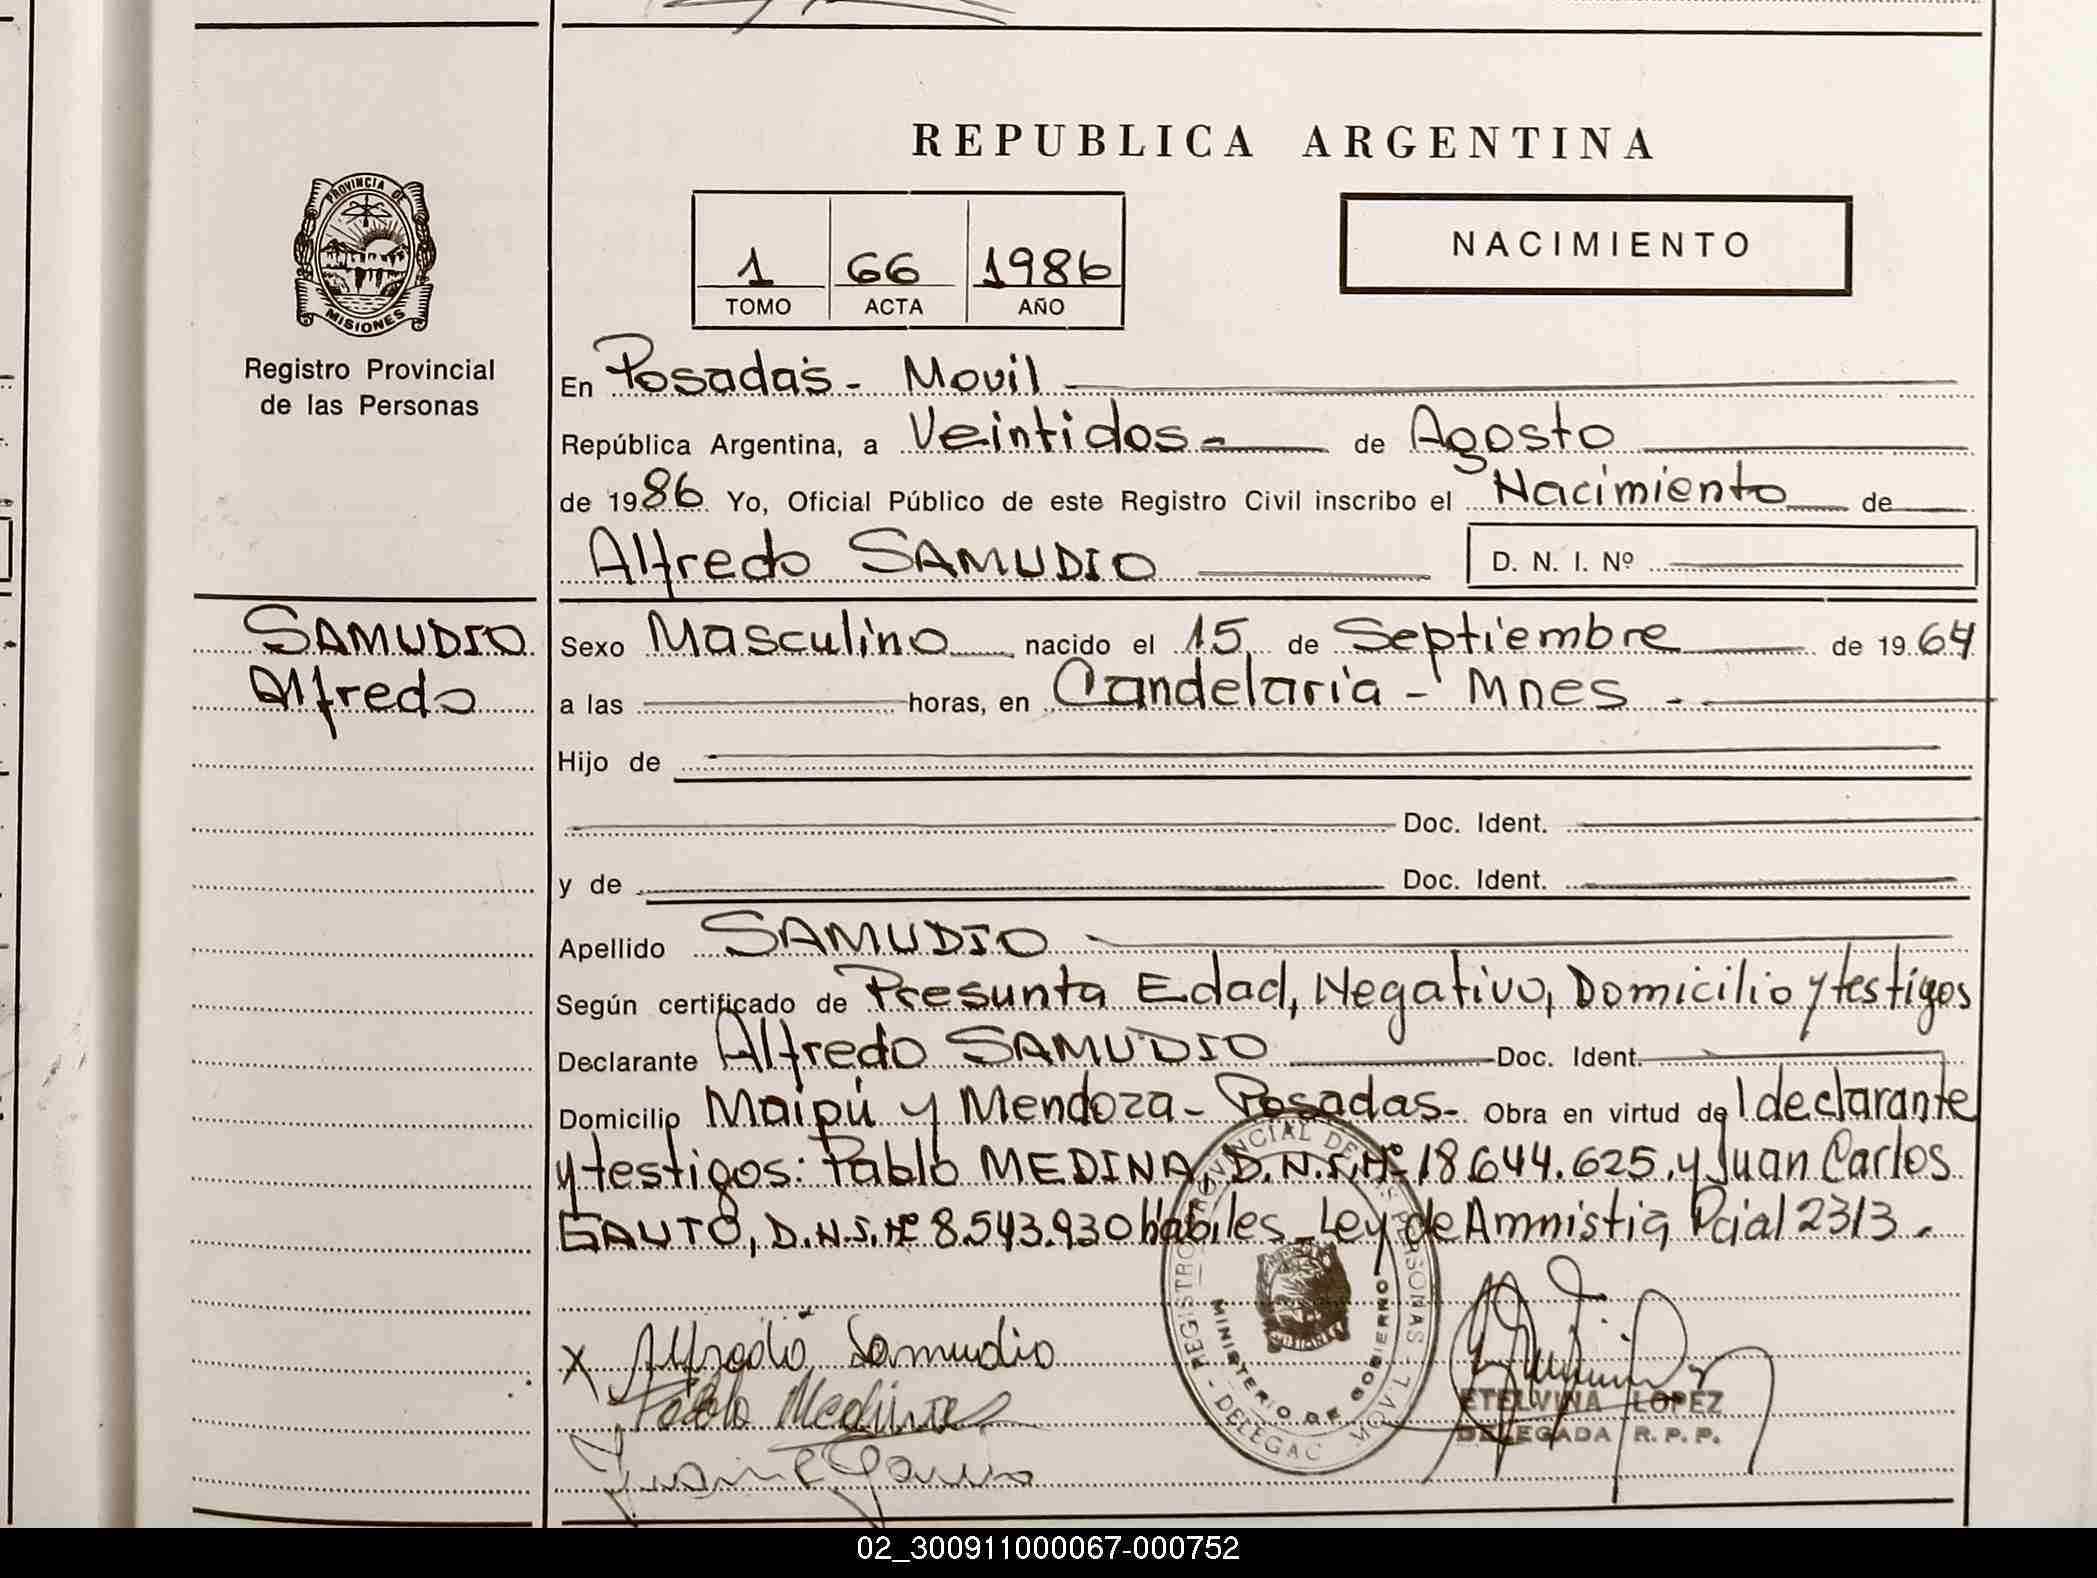 REPUBLICA ARGENTINA
PROVINCIA DE
MISIONES
Registro Provincial
de las Personas
1 66 1986
TOMO ACTA AÑO
NACIMIENTO
En Posadas - Movil
República Argentina, a Veintidos - de Agosto
de 1986 Yo, Oficial Público de este Registro Civil inscribo el Nacimiento de
Alfredo SAMUDIO D. N. I. Nº
SAMUDIO
Alfredo
Sexo Masculino nacido el 15 de Septiembre de 1964
a las horas, en Candelaria - Mnes -
Hijo de
Doc. Ident.
y de Doc. Ident.
Apellido SAMUDIO
Según certificado de Presunta Edad, Negativo, Domicilio y testigos
Declarante Alfredo SAMUDIO Doc. Ident.
Domicilio Maipú y Mendoza - Posadas - Obra en virtud del declarante
y testigos: Pablo MEDINA, D.N.I. Nº 18.644.625, y Juan Carlos
GAUTO, D.N.I. Nº 8.543.930 hábiles - Ley de Amnistia Pcial 2313 -
X Alfredo Samudio
Pablo Medina
REGISTRO PROVINCIAL DE LAS PERSONAS - DELEGAC MOVIL -
MINISTERIO DE GOBIERNO
ETELVINA LOPEZ
DELEGADA R. P. P.
02_300911000067-000752